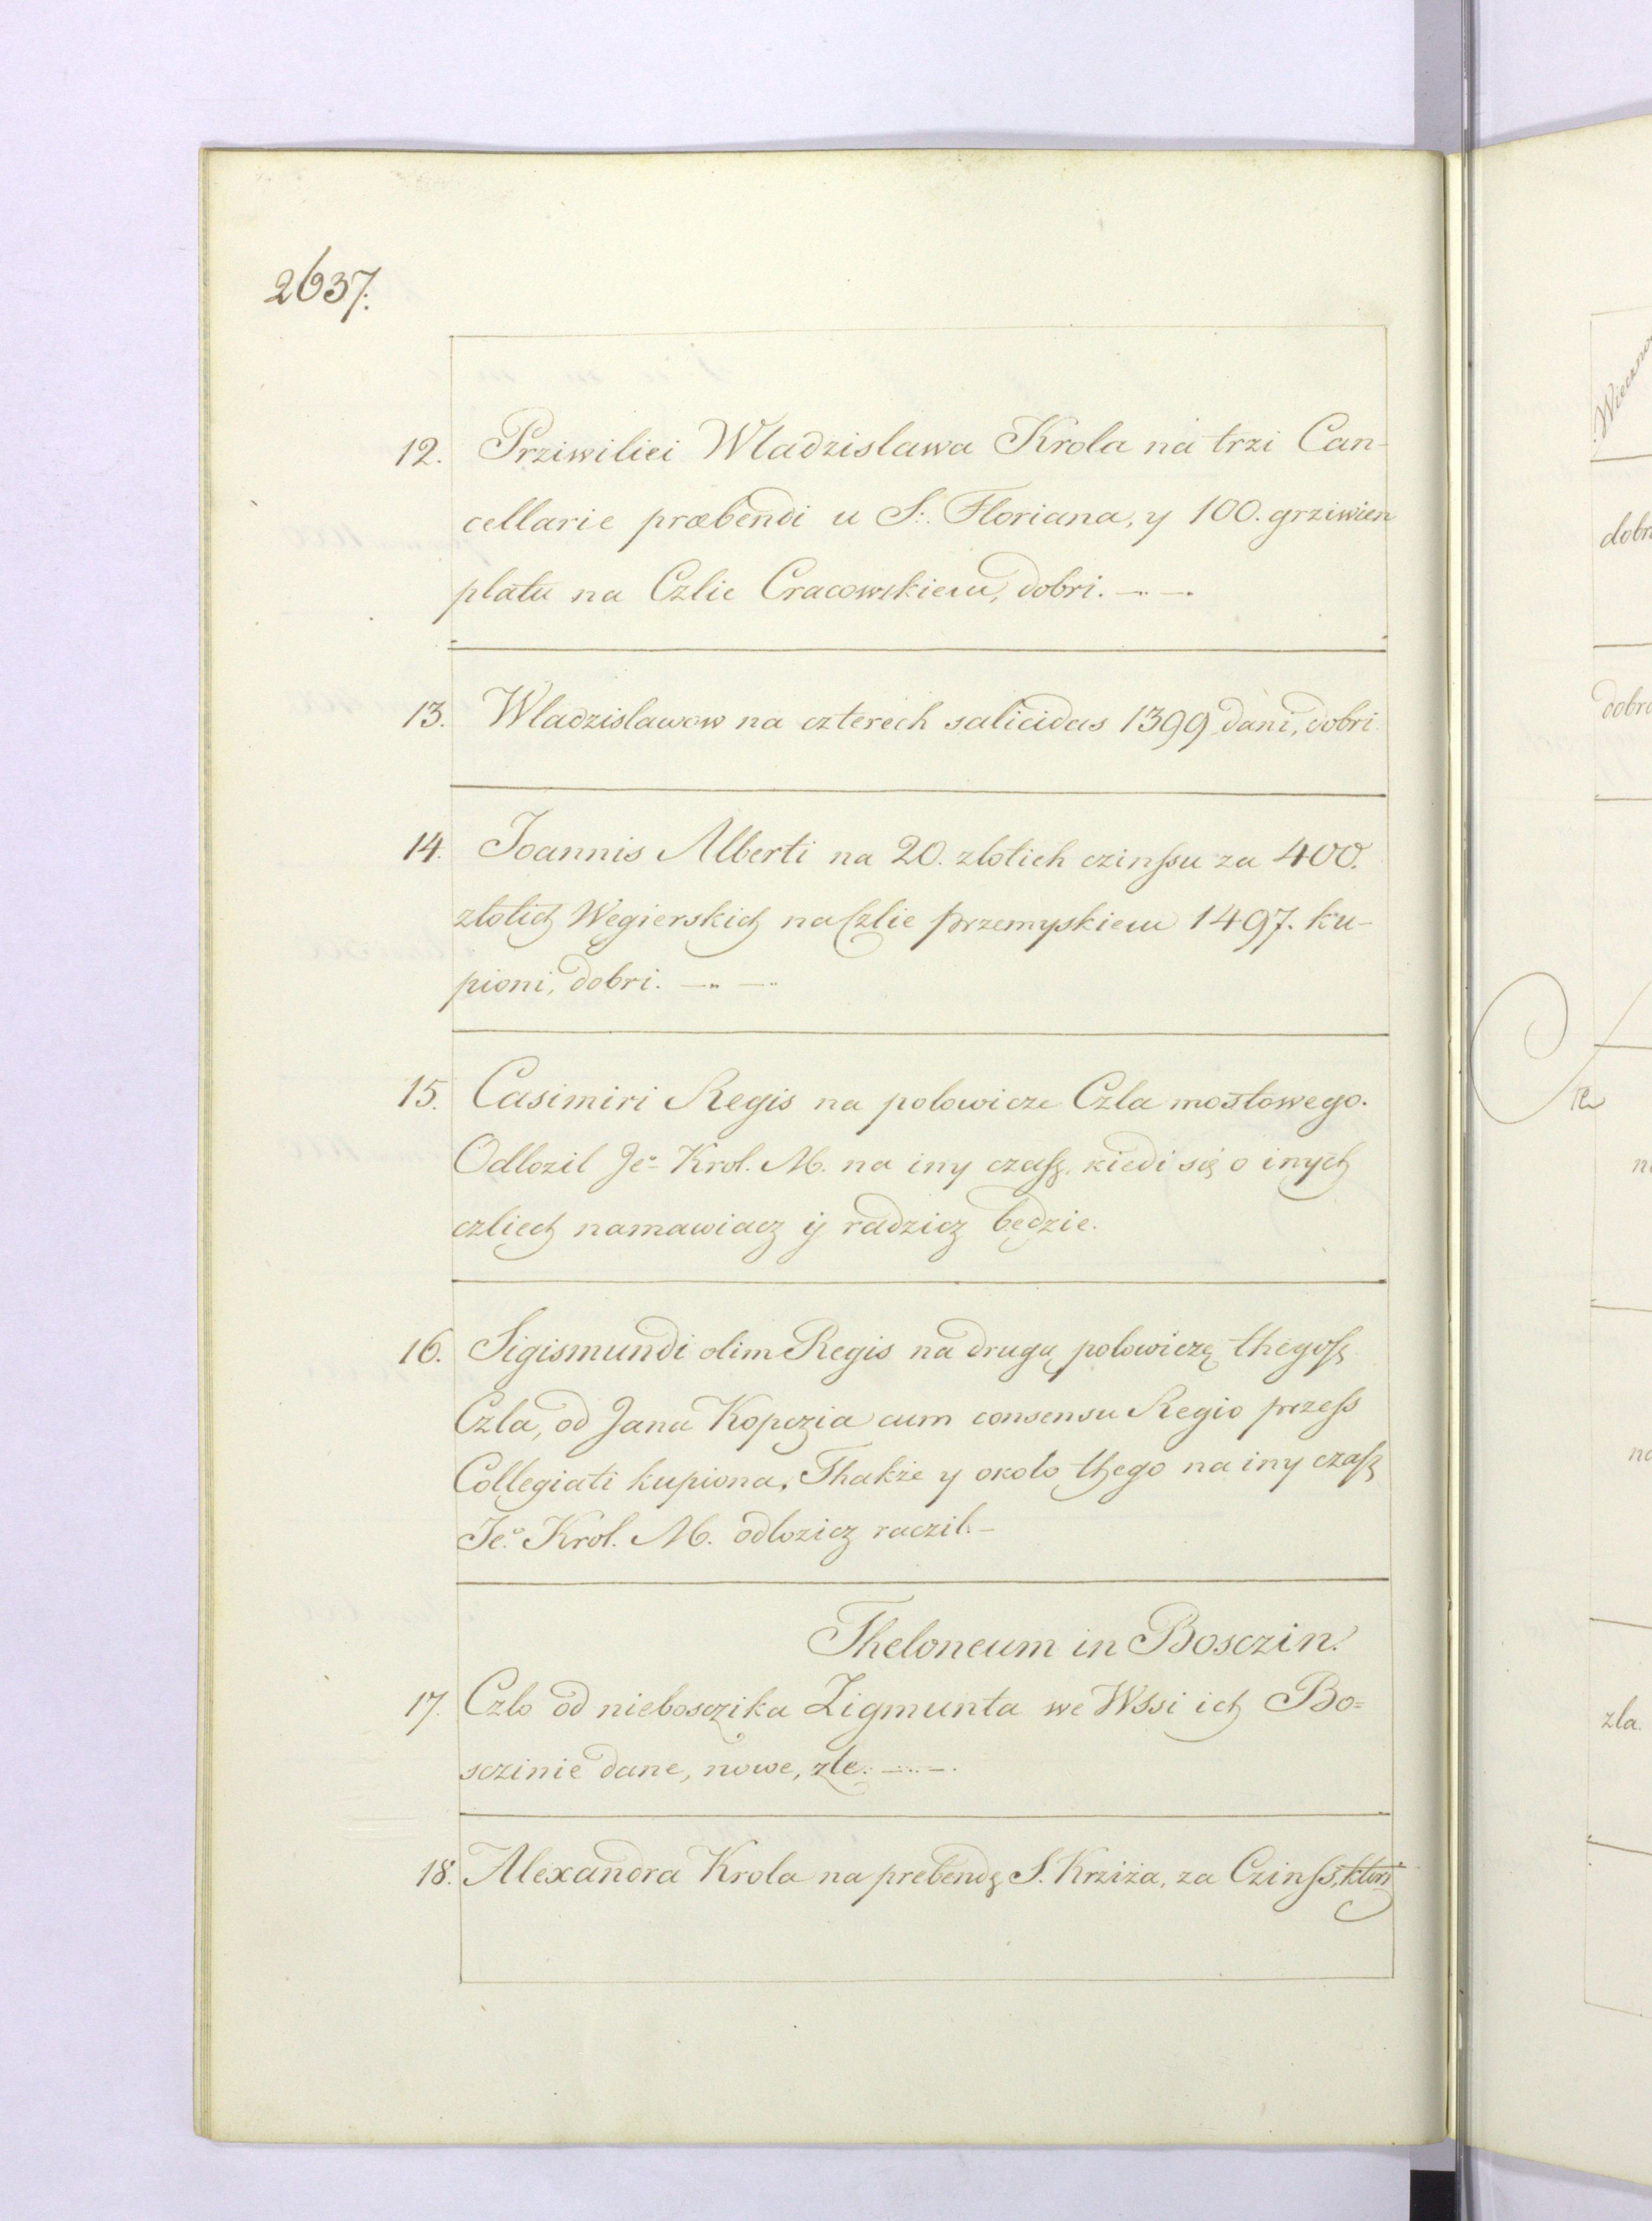 2637.
12. Prziwiliei Wladzislawa Krola na trzi Can-
cellarie præbendi u S. Floriana, y 100. grziwien
platu na Czlie Cracowskiem, dobri. —..—.
13. Wladzislawow na czterech salicidas 1399 dani, dobri.
14. Joannis Alberti na 20. zlotich czinſsu za 400.
zlotich Wegierskich na Czlie przemyskiem 1497. ku-
pioni, dobri. —.. —..
15. Casimiri Regis na polowicze Czla mostowego.
Odlozil Jeº Krol. M. na iny czaſz, kiedi się o inych
czliech namawiacz ÿ radzicz będzie.
16. Sigismundi olim Regis na drugą polowiczę thegoſz
Czla, od Jana Kopczia cum consensu Regio przeſs
Collegiati kupiona, Thakże y okolo thego na iny czaſz
Je.º Krol. M. odlozicz raczil. —
Theloneum in Bosczin.
17. Czlo od nieboszika Zigmunta we Wssi ich Bo=
sczinie dane, nowe, zle. —..—.
18. Alexandra Krola na prebendę S. Krziża, za Czinſs, ktori
dobr
dobr
zla.